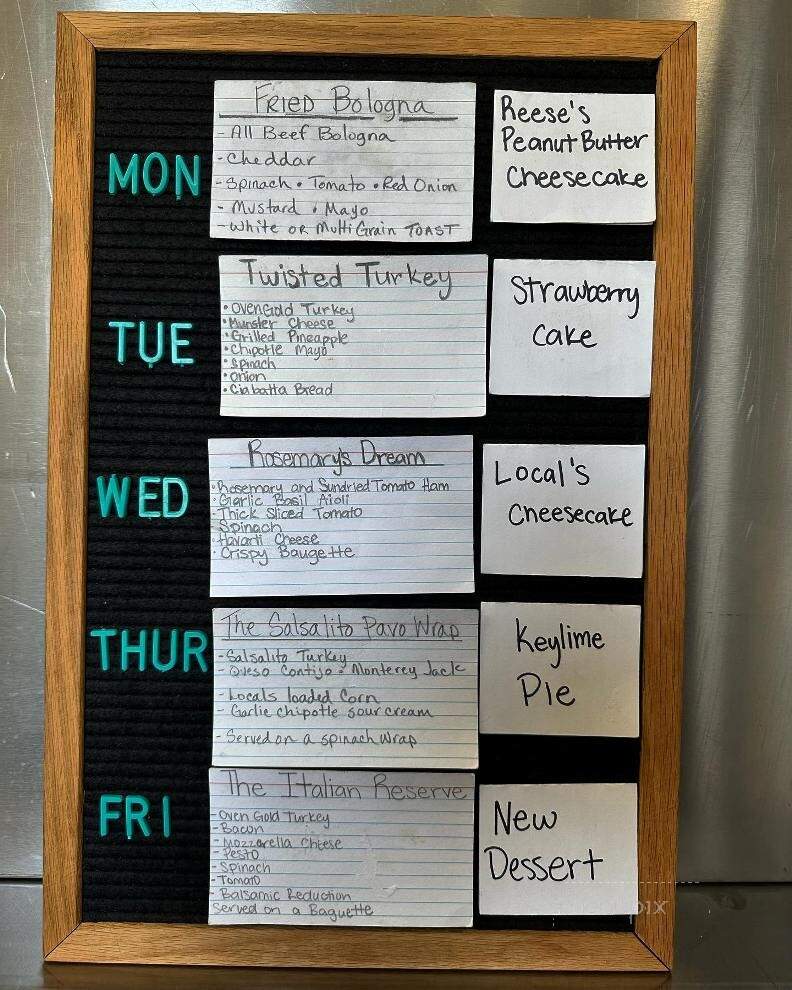 MON
FRIED Bologna
- All Beef Bologna
- Cheddar
- Spinach • Tomato • Red Onion
- Mustard • Mayo
- White OR MultiGrain TOAST
Reese's
Peanut Butter
Cheesecake
TUE
Twisted Turkey
• OvenGold Turkey
• Munster Cheese
• Grilled Pineapple
• Chipotle Mayo
• Spinach
• Onion
• Ciabatta Bread
Strawberry
Cake
WED
Rosemary's Dream
• Rosemary and Sundried Tomato Ham
• Garlic Basil Aioli
- Thick Sliced Tomato
- Spinach
• Havarti Cheese
• Crispy Baugette
Local's
Cheesecake
THUR
The Salsalito Pavo Wrap
- Salsalito Turkey
- Queso Contijo • Monterey Jack
- Locals loaded Corn
- Garlic chipotle sour cream
- Served on a spinach wrap
Keylime
Pie
FRI
The Italian Reserve
- Oven Gold Turkey
- Bacon
- Mozzarella Cheese
- Pesto
- Spinach
- Tomato
- Balsamic Reduction
Served on a Baguette
New
Dessert